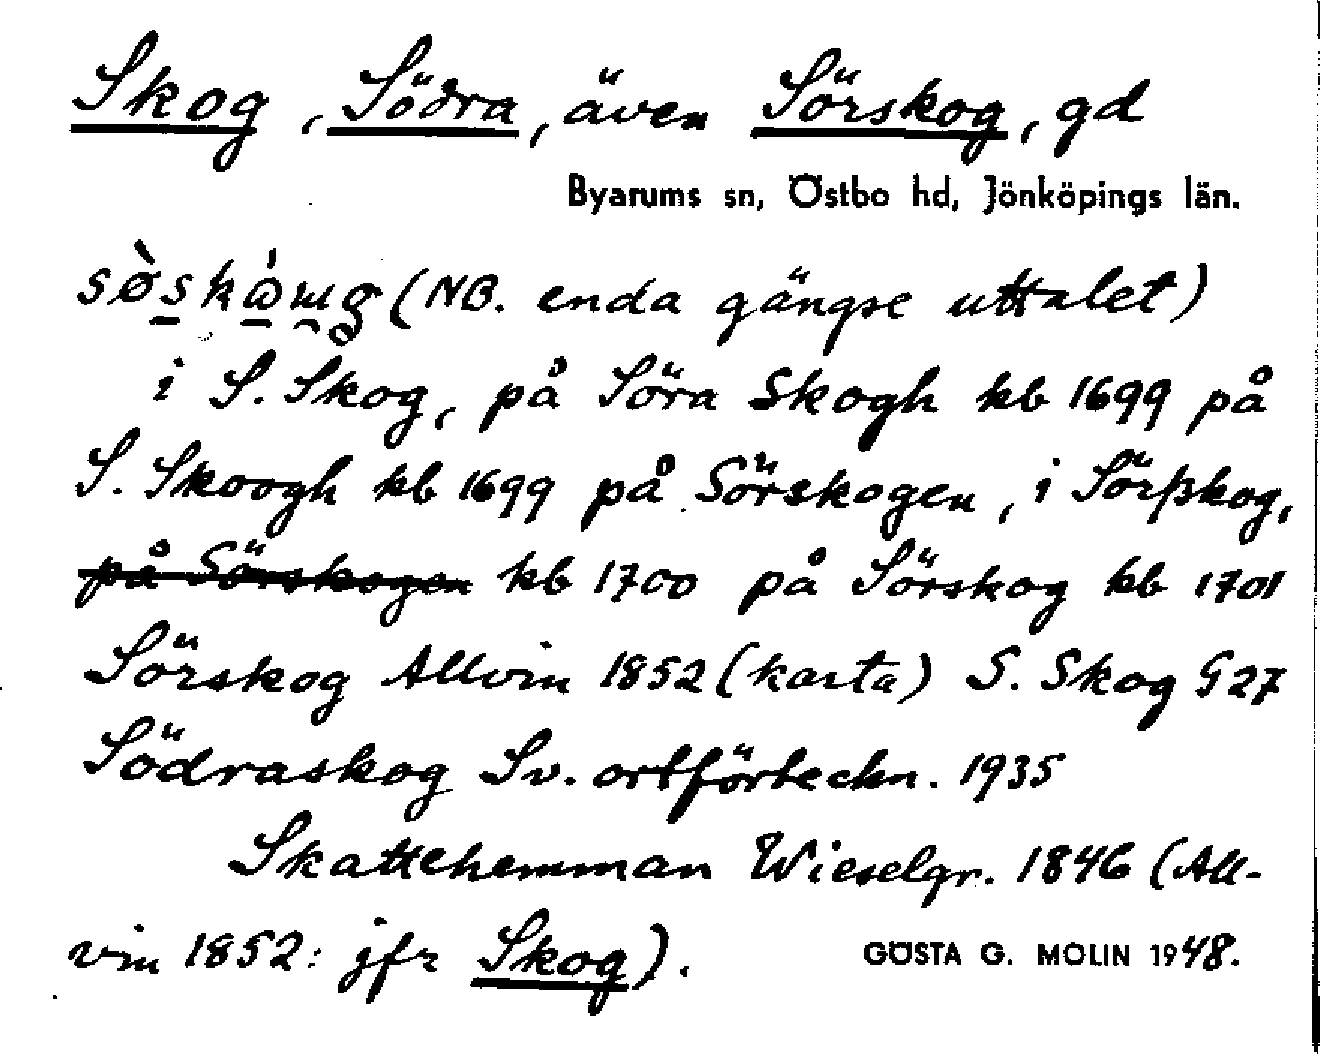 Skog, Södra, även Sörskog, gd
Byarums sn, Östbo hd, Jönköpings län.
(NB. enda gängse uttalet)
i S. Skog, på Söra Skogh kb 1699 på
S. Skoogh kb 1699 på Sörskogen, i Sörßkog,
på Sörskogen kb 1700 på Sörskog kb 1701
Sörskog Allvin 1852 (karta) S. Skog G 27
Södraskog Sv. ortförteckn. 1935
Skattehemman Wieselgr. 1846 (All-
vin 1852: jfr Skog).
GÖSTA G. MOLIN 1948.